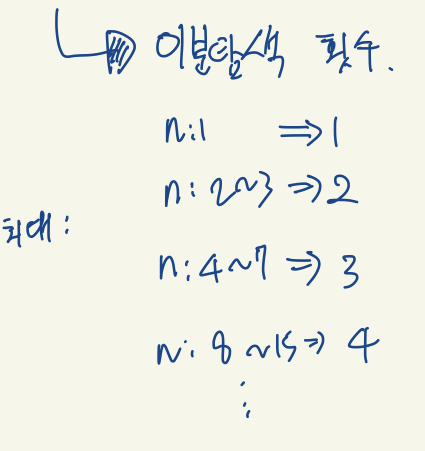 이분탐색 횟수.
n:1 ⇒ 1
n: 2~3 ⇒ 2
최대:
n: 4~7 ⇒ 3
n: 8~15 ⇒ 4
⋮